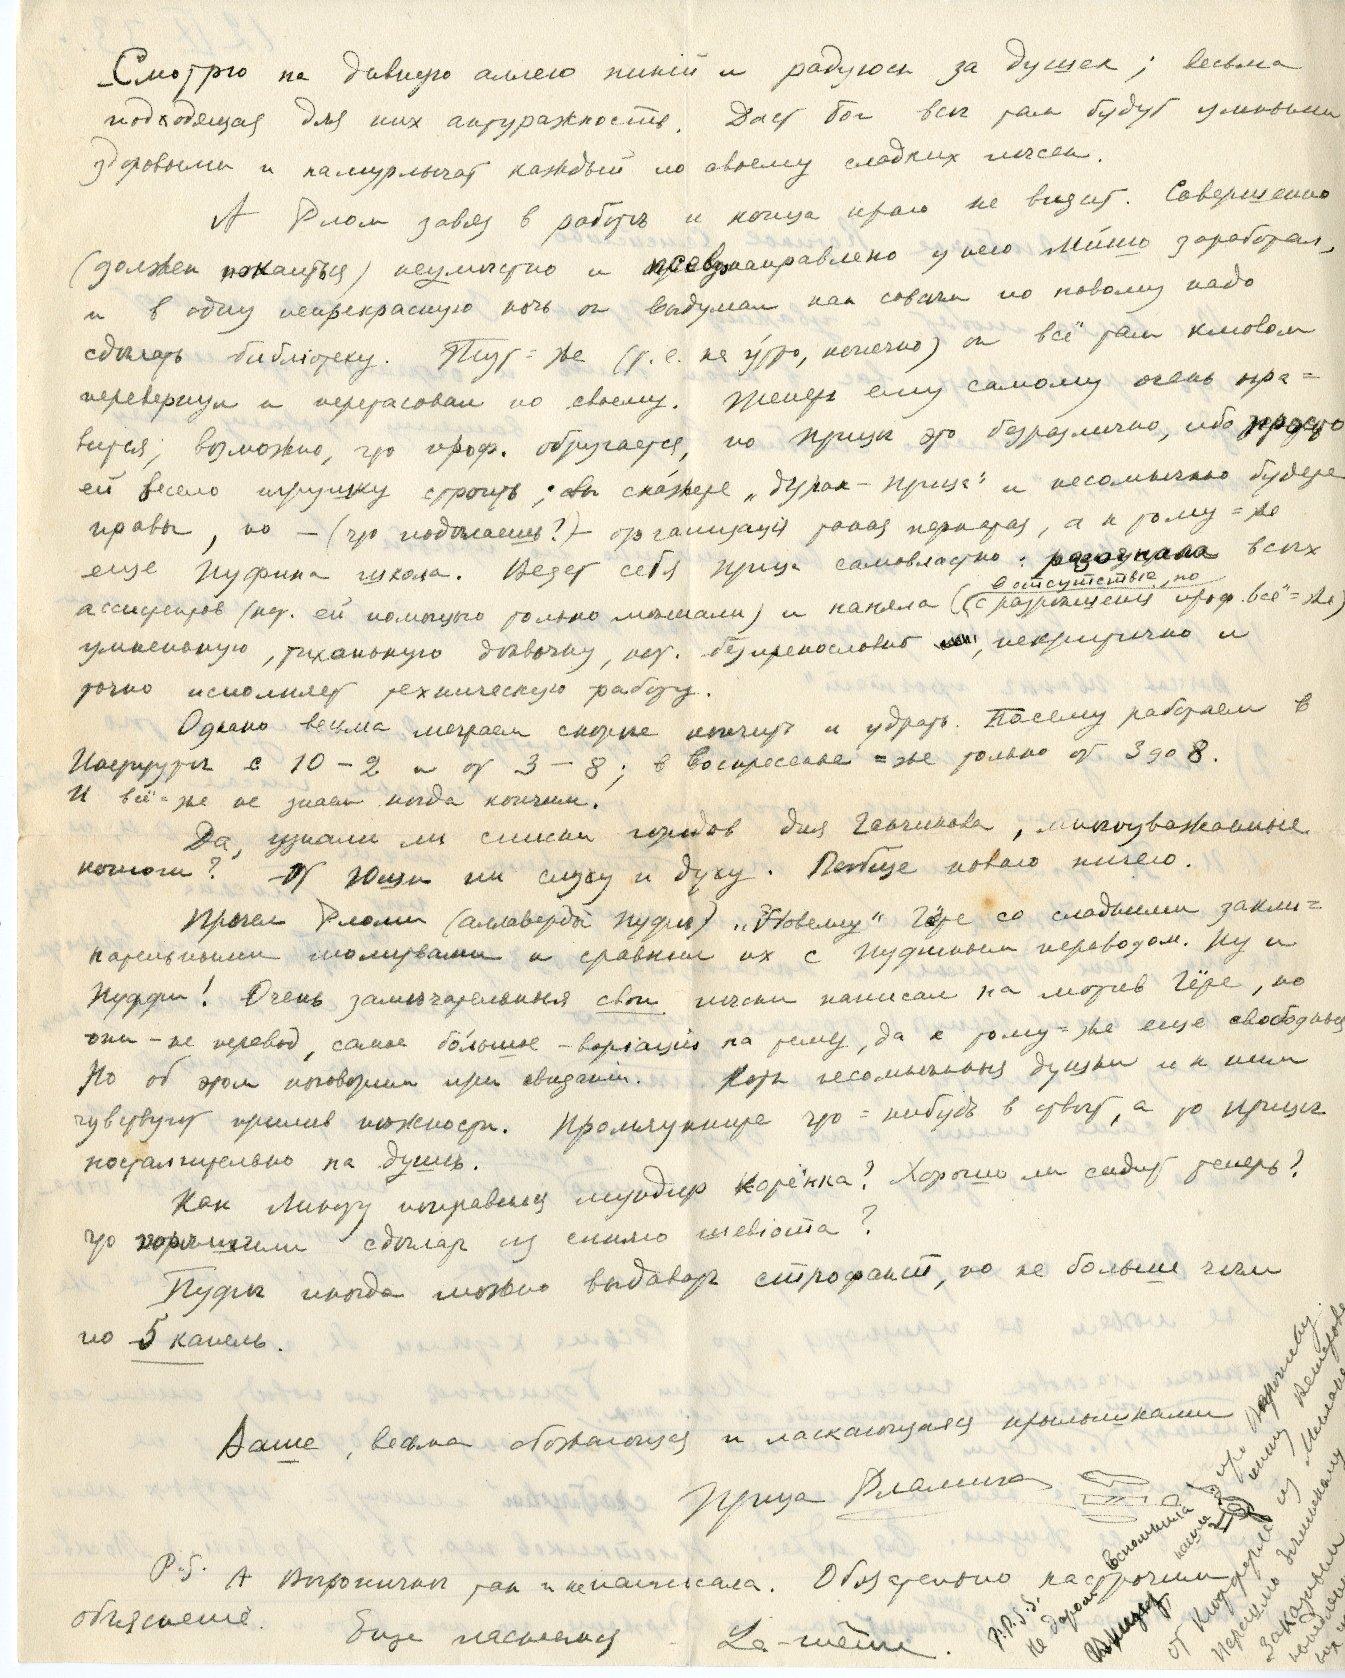 Смотрю на дивную аллею пиний и радуюсь за душек; весьма
подходящая для них антуражность. Даст бог все там будут умными
здоровыми и намурлычат каждый по своему сладких песен.
А Флом завяз в работе и конца краю не видит. Совершенно
(должен покаяться) неумыстно и направлено у него заработал,
и в одну непрекрасную ночь он выдумал как совсем по новому надо
сделать библiотеку. Тут=же (т.е. на утро, конечно) он всё там клювом
перевернул и перетасовал по своему. Теперь ему самому очень нра=
вится; возможно, что проф. обругается, но Прице это безразлично, ибо просто
ей весело игрушку строить; вы скажете „дурак-Прица" и несомненно будете
правы, но – (что поделаешь?) – организацiя такая пернатая, а к тому=же
еще Пуфина школа. Ведет себя Прица самовластно: разогнала всех
ассистентов (кот. ей помощью только мешали) и наняла (в отсутствие, но
с разрешения проф. всё=же)
умненькую, тихонькую девочку, кот. безпрекословно, некритично и
точно исполняет техническую работу.
Однако весьма мечтаем скорее кончить и удрать. Посему работаем в
Институте с 10 – 2 и от 3 – 8; в воскресенье=же только от 3 до 8.
И всё=же не знаем когда кончим.
Да, узнали ли списки городов для Ганчикова, многоуважаемые
коты? От Юши ни слуху и духу. Вообще нового ничего.
Прочел Фломи (аллаверды Пуфы) „Новеллу" Гёте со сладкими закли=
нательными молитвами и сравнил их с Пуфиным переводом. Ну и
Пуффи! Очень замечательныя свои песни написал на мотив Гёте, но
они – не перевод, самое большое – варiацiи на тему, да к тому=же еще свободныя
Но об этом поговорим при свиданiи. Хоть несомненныя душки и к ним
чувствует прилив нежности. Промяукните что=нибудь в ответ, а то Прице
ностальгительно на душе.
Как Линду понравился мундир Карёнка? Хорошо ли сидит теперь?
Что сделал из синяго шевiота?
Пуфы иногда можно выдавать строфант, но не больше чем
по 5 капель.
Ваше, весьма обожающая и ласкающаяся крылышками
Прица Фламига
P.S. А Вероничке так и не написала. Обязательно настрочим
объяснение. Еще ласкаемся – Le-même.
P.P.S.S. Вспомнила про
Не даром нашла
Прица
от Киффера из Милана
Письмо
Заказным